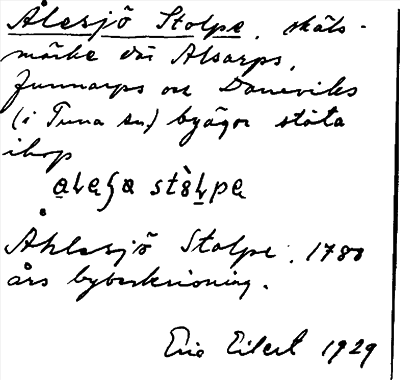 Ålesjö Stolpe, skäls-
märke där Alsarps,
Gunnarps och Daneviks
(i Tuna sn) byägor stöta
ihop
Åhlesjö Stolpe, 1780
års bybeskrivning.
Eric Eilert 1929